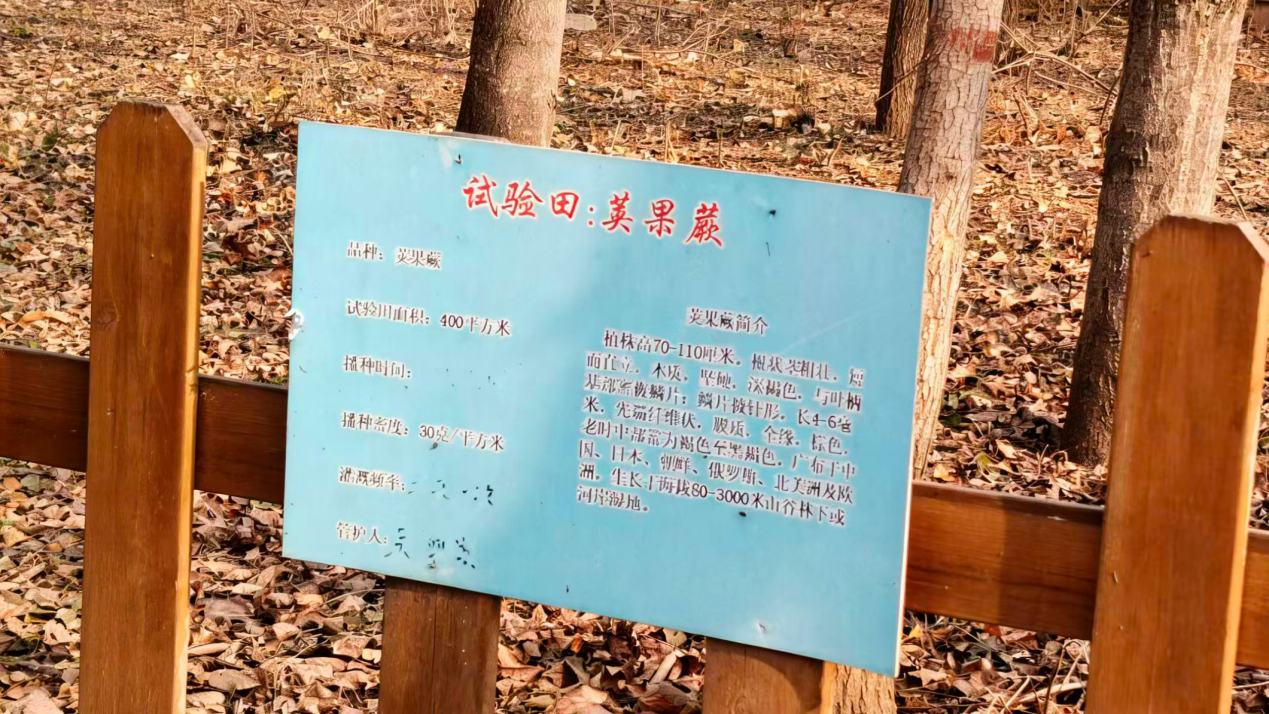 试验田:荚果蕨
品种：荚果蕨
试验田面积：400平方米
播种时间：
播种密度：30克/平方米
灌溉频率：
管护人：
荚果蕨简介
植株高70-110厘米。根状茎粗壮，短
而直立，木质，坚硬，深褐色，与叶柄
基部密被鳞片；鳞片披针形，长4-6毫
米，先端纤维状，膜质，全缘，棕色，
老时中部常为褐色至黑褐色。广布于中
国、日本、朝鲜、俄罗斯、北美洲及欧
洲。生长于海拔80-3000米山谷林下或
河岸湿地。